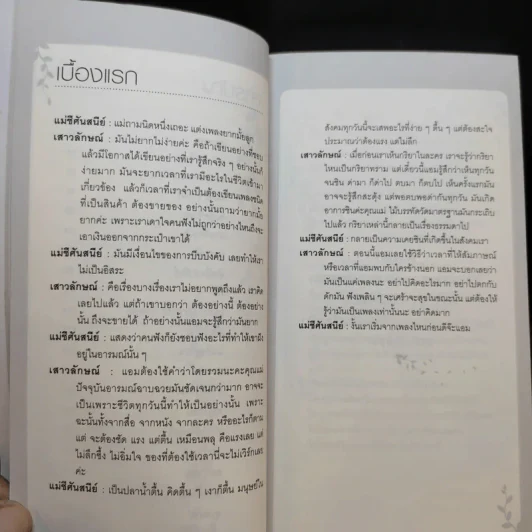 เบื้องแรก
แม่ชีศันสนีย์ : แม่ถามนิดหนึ่งเถอะ แต่งเพลงยากมั้ยลูก
เสาวลักษณ์ : มันไม่ยากไม่ง่ายค่ะ คือถ้าเขียนอย่างที่ชอบ
แล้วมีโอกาสได้เขียนอย่างที่เรารู้สึกจริง ๆ อย่างนั้นก็
ง่ายมาก มันจะยากเวลาที่เรามีอะไรในชีวิตเข้ามา
เกี่ยวข้อง แล้วก็เวลาที่เราจำเป็นต้องเขียนเพลงชนิด
ที่เป็นสินค้า ต้องขายของ อย่างนั้นถามว่ายากมั้ย
ยากค่ะ เพราะเราเดาใจคนฟังไม่ถูกว่าอย่างไหนถึงจะ
เอาเงินออกจากกระเป๋าเขาได้
แม่ชีศันสนีย์ : มันมีเงื่อนไขของการบีบบังคับ เลยทำให้เรา
ไม่เป็นอิสระ
เสาวลักษณ์ : คือเรื่องบางเรื่องเราไม่อยากพูดถึงแล้ว เราคิด
เลยไปแล้ว แต่ถ้าเขาบอกว่า ต้องอย่างนี้ ต้องอย่าง
นั้น ถึงจะขายได้ ถ้าอย่างนั้นแอมจะรู้สึกว่ามันยาก
แม่ชีศันสนีย์ : แสดงว่าคนฟังก็ยังชอบฟังอะไรที่ทำให้เขา
อยู่ในอารมณ์นั้น ๆ
เสาวลักษณ์ : แอมต้องใช้คำว่าโดยรวมนะคะคุณแม่
ปัจจุบันอารมณ์ฉาบฉวยมันชัดเจนกว่ามาก อาจจะ
เป็นเพราะชีวิตทุกวันนี้ทำให้เป็นอย่างนั้น เพราะ
ฉะนั้นทั้งจากสื่อ จากหนัง จากละคร หรืออะไรก็ตาม
แต่ จะต้องชัด แรง แต่ตื้น เหมือนพลุ คือแรงเลย แต่
ไม่ลึกซึ้ง ไม่อิ่มใจ ของที่ต้องใช้เวลานี่จะไม่เวิร์กเลย
ค่ะ
แม่ชีศันสนีย์ : เป็นปลาน้ำตื้น คิดตื้น ๆ เงาก็ตื้น มนุษย์ใน
สังคมทุกวันนี้จะเสพอะไรที่ง่าย ๆ ตื้น ๆ แต่ต้องสะใจ
ประมาณว่าต้องแรง แต่ไม่ลึก
เสาวลักษณ์ : เมื่อก่อนเราเห็นกิริยาในละคร เราจะรู้ว่ากริยา
ไหนเป็นกิริยาทราม แต่เดี๋ยวนี้แอมรู้สึกว่าเห็นทุกวัน
จนชิน ด่ามา ก็ด่าไป ตบมา ก็ตบไป เห็นครั้งแรกมัน
อาจจะรู้สึกสะดุ้ง แต่พอตบพอด่ากันทุกวัน มันเกิด
อาการชินค่ะคุณแม่ ไม้บรรทัดวัดมาตรฐานมันกระเถิบ
ไปแล้ว กริยาเหล่านี้กลายเป็นเรื่องธรรมดาไป
แม่ชีศันสนีย์ : กลายเป็นความเคยชินที่เกิดขึ้นในสังคมเรา
เสาวลักษณ์ : ตอนนี้แอมเลยใช้วิธีว่าเวลาที่ให้สัมภาษณ์
หรือเวลาที่แอมพบกับใครข้างนอก แอมจะบอกเลยว่า
มันเป็นแค่เพลงนะ อย่าไปคิดอะไรมาก อย่าไปตกกับ
ดักมัน ฟังเพลิน ๆ จะเศร้าจะสุขในขณะนั้น แต่ต้องให้
รู้ว่ามันเป็นเพลงเท่านั้นนะ อย่าคิดมาก
แม่ชีศันสนีย์ : งั้นเราเริ่มจากเพลงไหนก่อนดีจ๊ะแอม